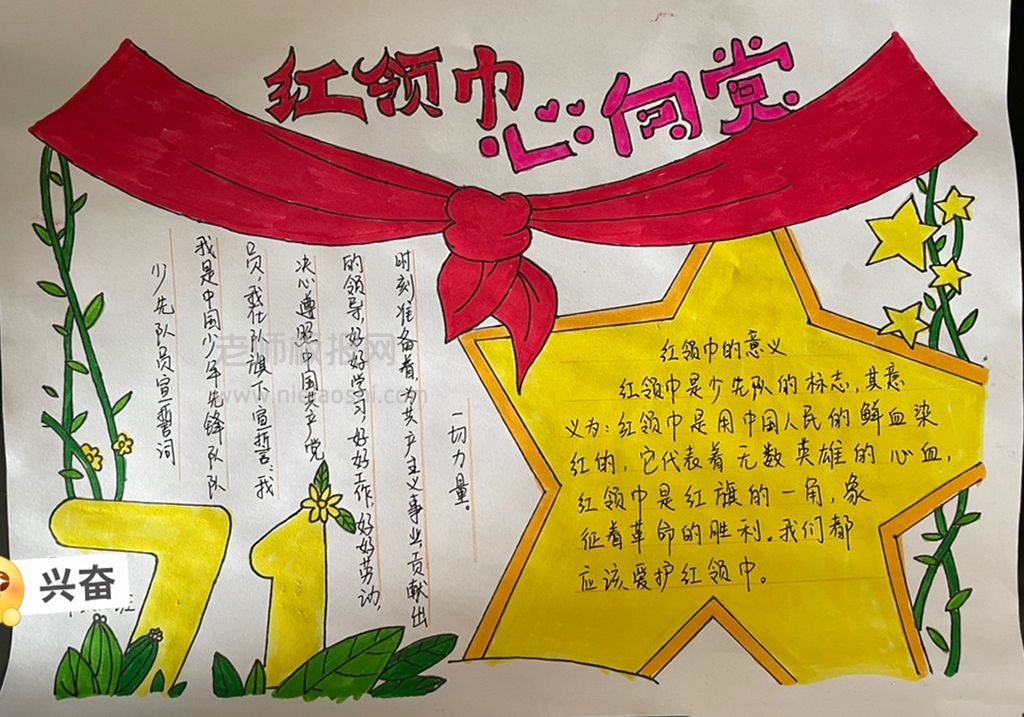 红领巾
心向党
少先队员宣誓词
我是中国少年先锋队队
员，我在队旗下宣哲：我
决心遵照中国共产党
的领导，好好学习，好好工作，好好劳动，
时刻准备着，为共产主义事业贡献出
一切力量。
红领巾的意义
红领巾是少先队的标志，其意
义为：红领巾是用中国人民的鲜血染
红的，它代表着无数英雄的心血，
红领巾是红旗的一角，象
征着革命的胜利。我们都
应该爱护红领巾。
71
兴奋
班
老师板报网